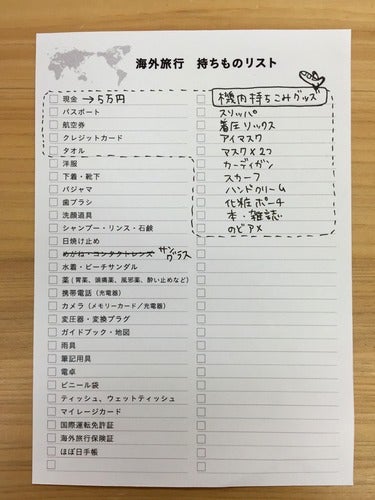 海外旅行 持ちものリスト
現金 →5万円
パスポート
航空券
クレジットカード
タオル
洋服
下着・靴下
パジャマ
歯ブラシ
洗顔道具
シャンプー・リンス・石鹸
日焼け止め
めがね・コンタクトレンズ サングラス
水着・ビーチサンダル
薬(胃薬、頭痛薬、風邪薬、酔い止めなど)
携帯電話(充電器)
カメラ(メモリーカード/充電器)
変圧器・変換プラグ
ガイドブック・地図
雨具
筆記用具
電卓
ビニール袋
ティッシュ、ウェットティッシュ
マイレージカード
国際運転免許証
海外旅行保険証
ほぼ日手帳
機内持ちこみグッズ
スリッパ
着圧ソックス
アイマスク
マスク×2つ
カーディガン
スカーフ
ハンドクリーム
化粧ポーチ
本・雑誌
のどアメ